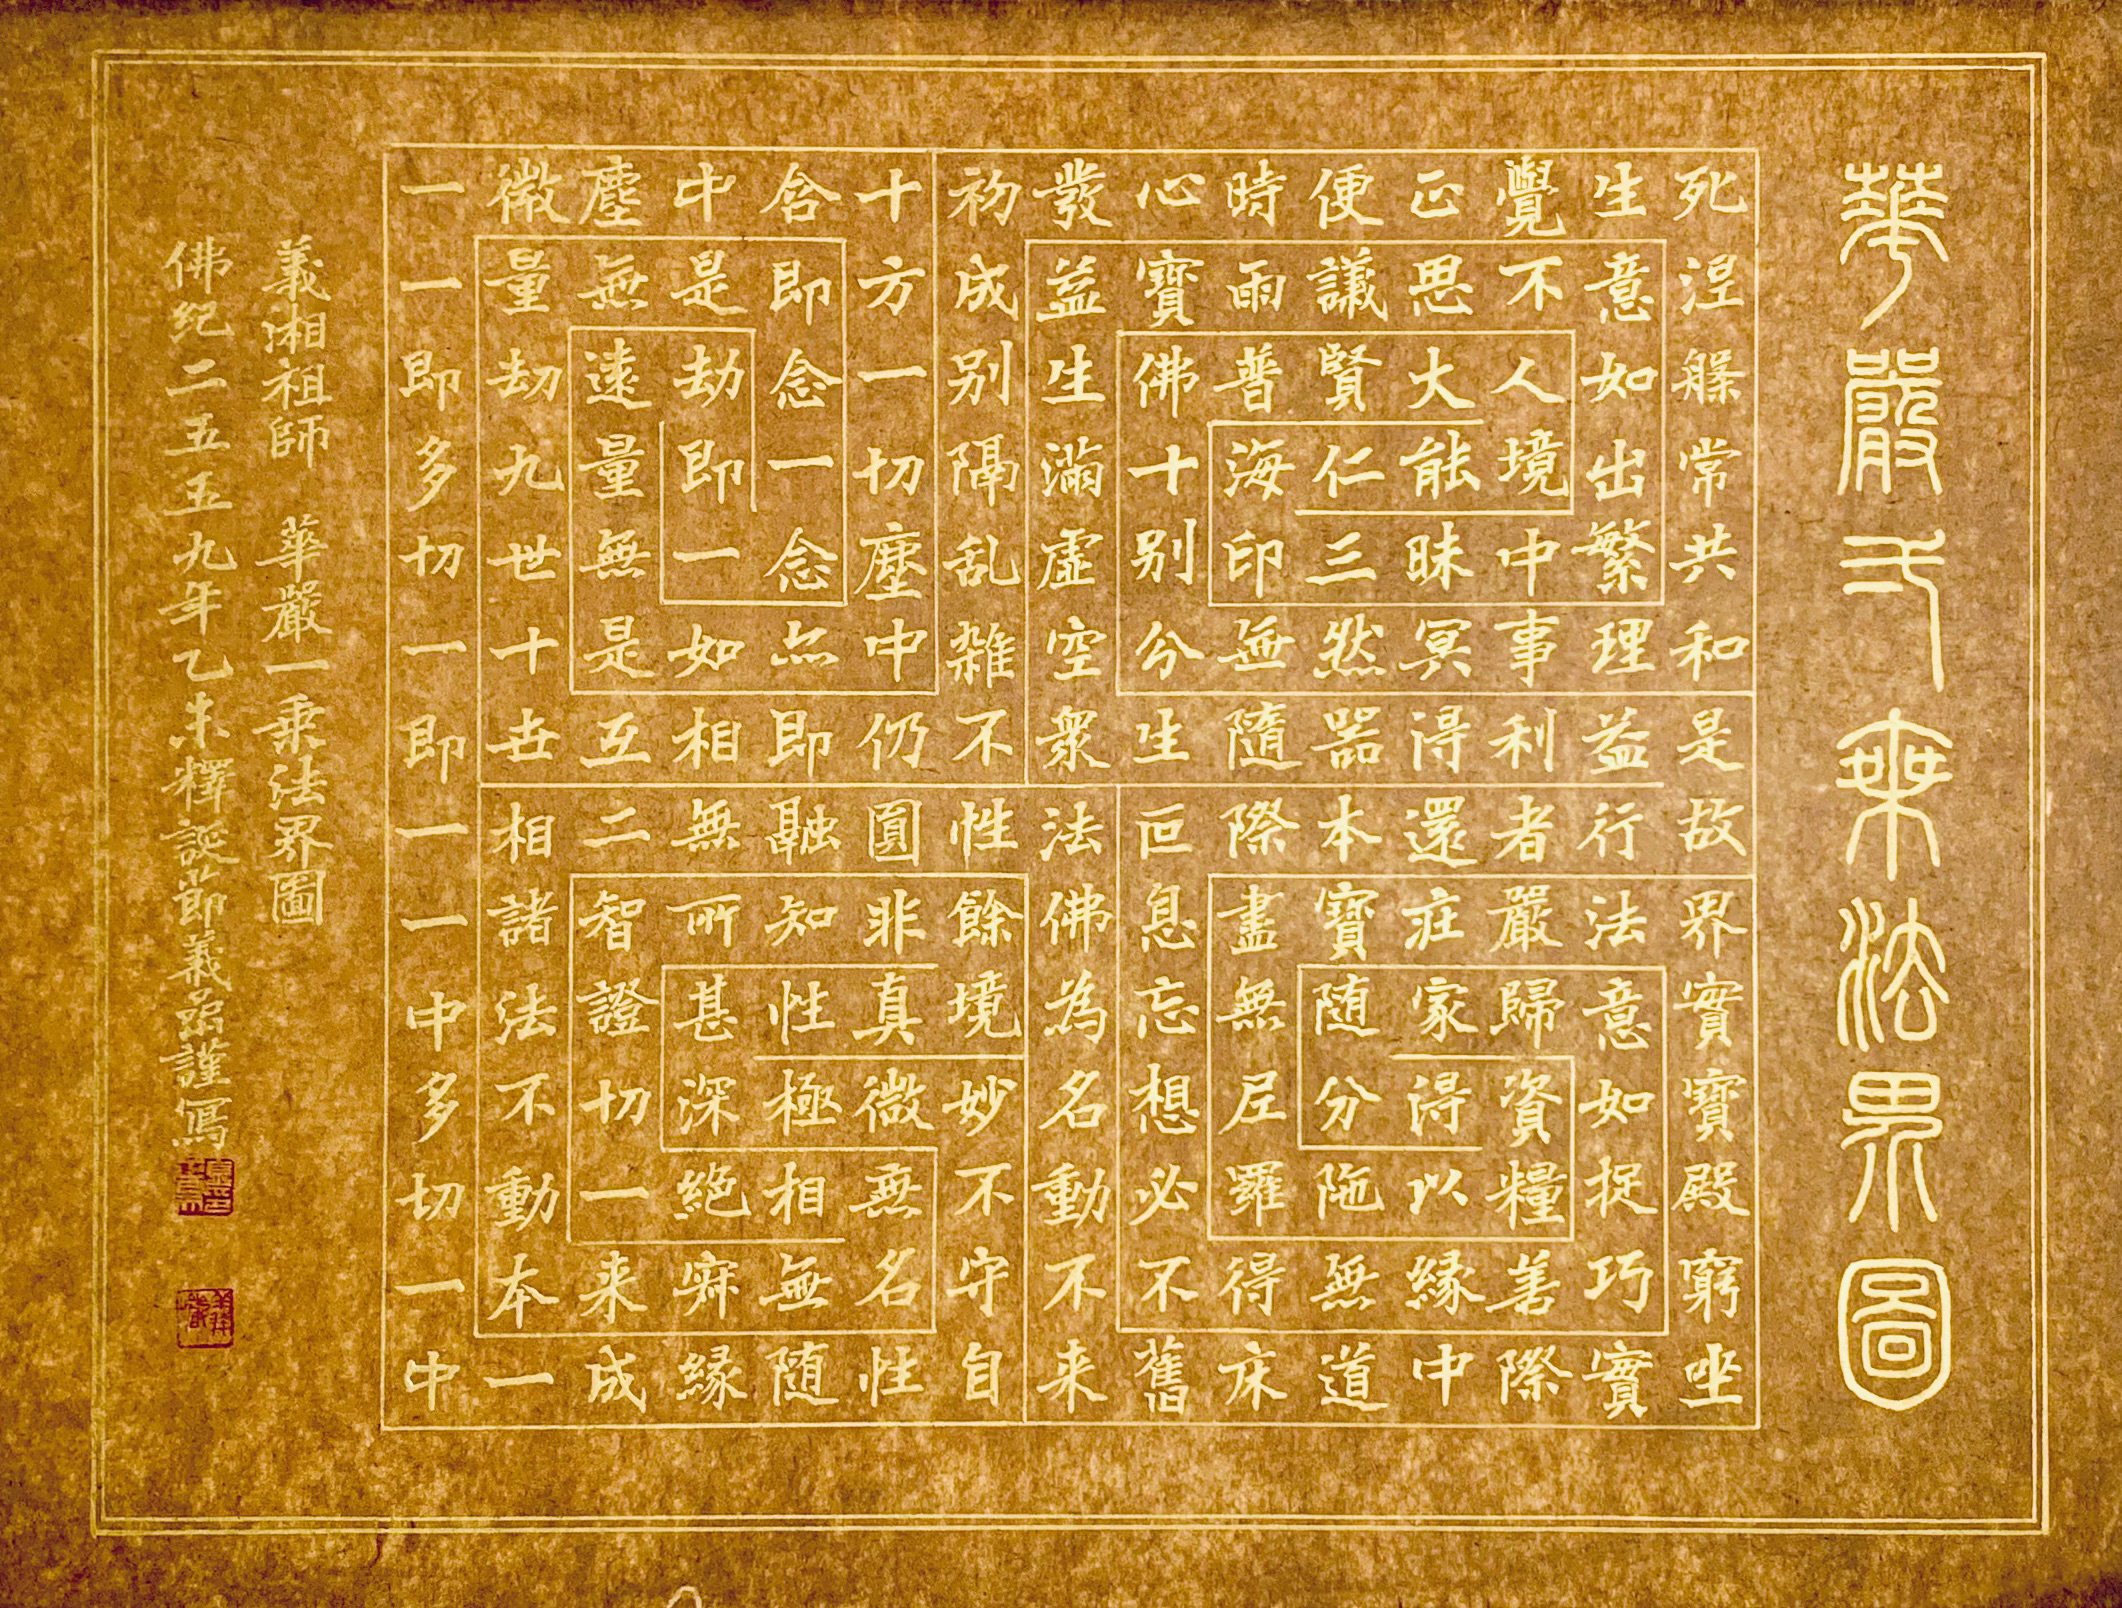 華嚴弌乘法界圖
死涅槃常共和是故界實寶殿窮坐
生意如出繁理益行法意如捉巧實
覺不人境中事利者嚴歸資糧善際
正思大能昧冥得還庄家得以緣中
便議賢仁三然器本寶随分陁無道
時雨普海印無隨際盡無尼羅得床
心寶佛十別分生叵息忘想必不舊
發益生滿虛空衆法佛為名動不来
初成別隔乱雜不性餘境妙不守自
十方一切塵中仍圓非真微無名性
含即念一念亦即融知性極相無随
中是劫即一如相無所甚深絶寂緣
塵無遠量無是互二智證切一来成
微量劫九世十世相諸法不動本一
一一即多切一即一一中多切一中
義湘祖師 華嚴一乘法界圖
佛紀二五五九年乙未釋誕節義謹寫